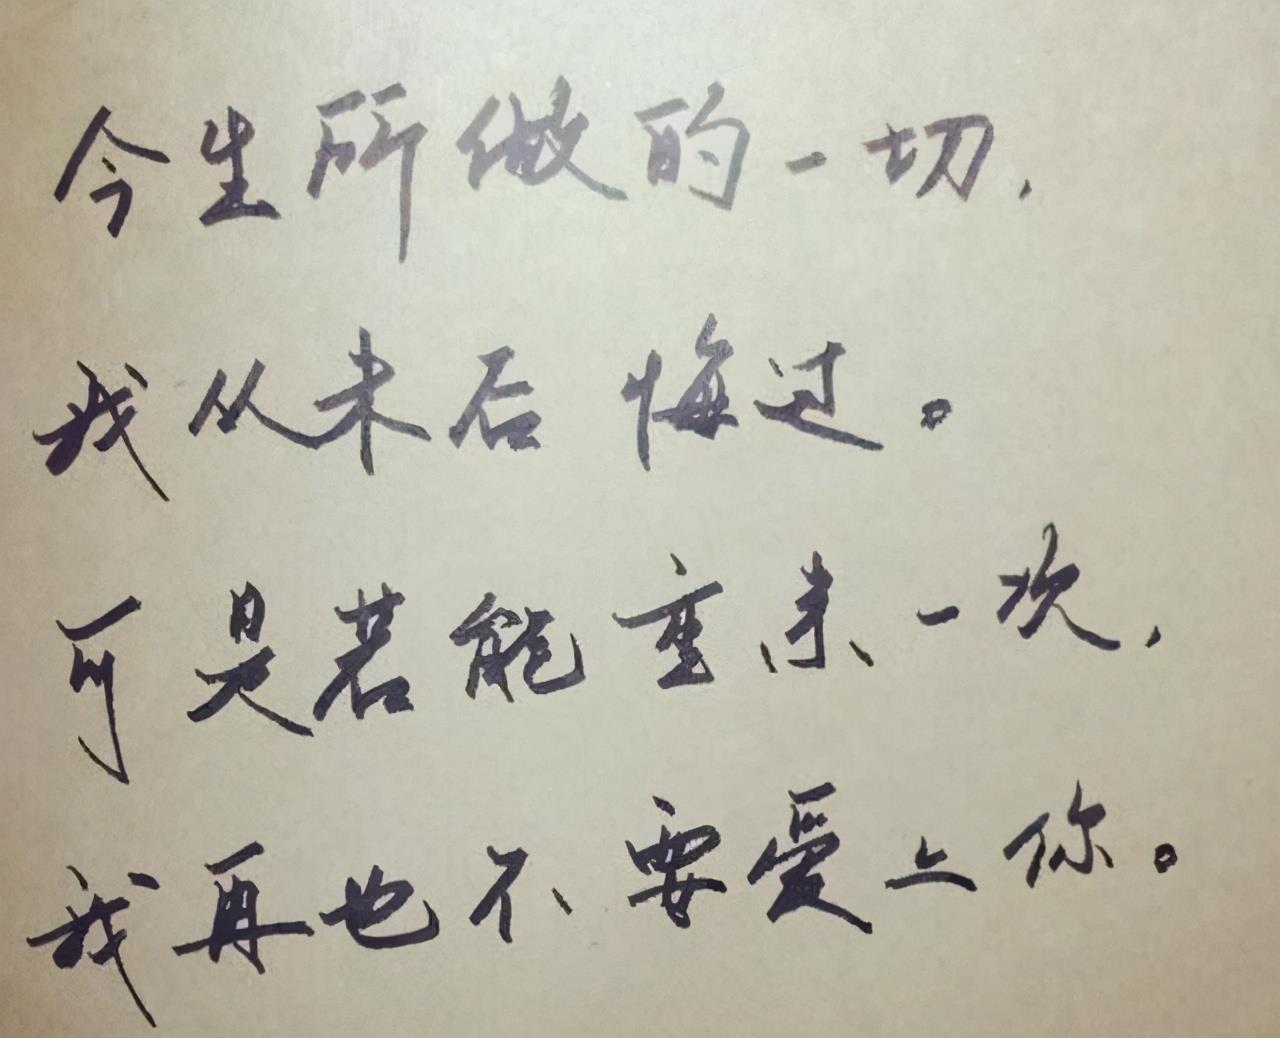 今生所做的一切，
我从未后悔过。
可是若能重来一次，
我再也不要爱上你。